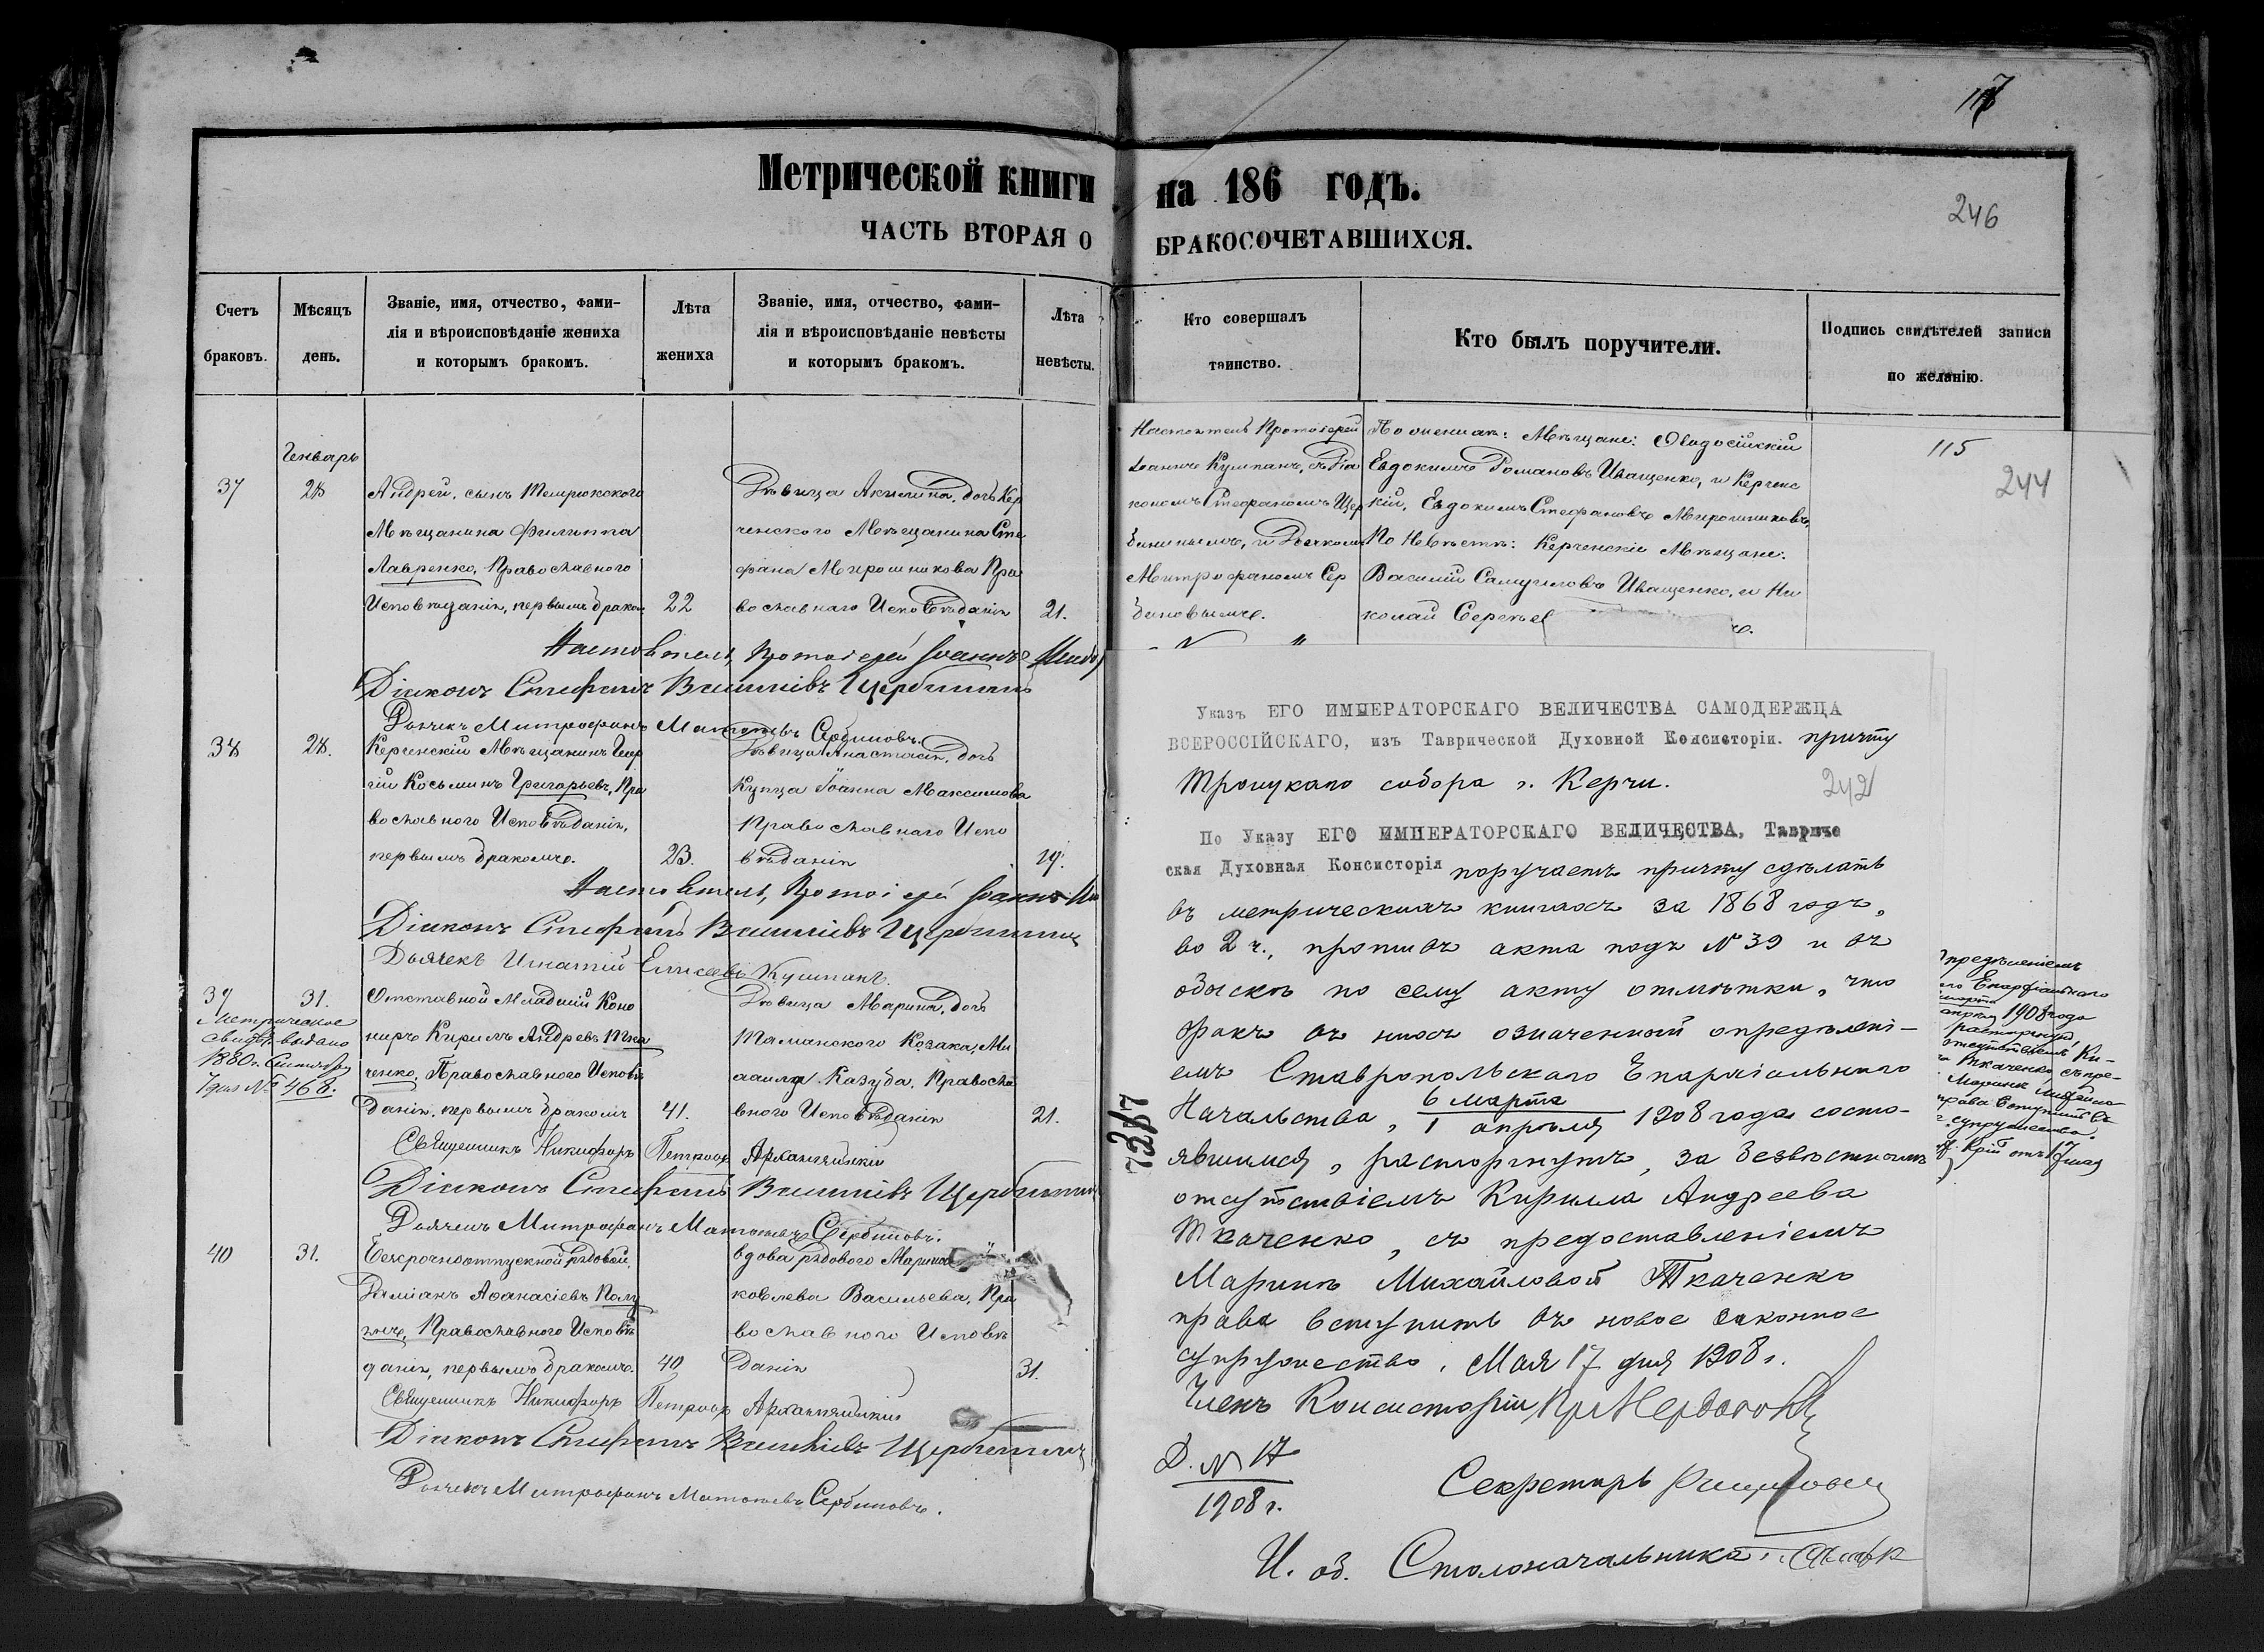 117
Метрической книги на 186 годъ.
246
ЧАСТЬ ВТОРАЯ О БРАКОСОЧЕТАВШИХСЯ.
Счетъ браковъ.
Мѣсяцъ день.
Званіе, имя, отчество, фами-
лія и вѣроисповѣданіе жениха
и которымъ бракомъ.
Лѣта жениха
Званіе, имя, отчество, фами-
лія и вѣроисповѣданіе невѣсты
и которымъ бракомъ.
Лѣта невѣсты.
Кто совершалъ таинство.
Кто былъ поручители.
Подпись свидѣтелей записи
по желанію.
Генварь
37
28
Андрей, сынъ Темрюкского
Мѣщанина Филиппа
Лавренко, Православного
Исповѣданія, первымъ бракомъ
22
Дѣвица Акилина, дочь Кер
ченского Мѣщанина Сте
фана Мирошникова Пра
вославнаго Исповѣданія
21.
Настоятель Протоіерей
Іоаннъ Кумпанъ, съ Діа
кономъ Стефаномъ Щер
бининымъ, и Дьячкомъ
Митрофаномъ Сер
биновымъ.
По женихѣ: Мѣщане: Ѳеодосійскій
Евдокимъ Романовъ Иващенко, и Керченс
кій, Евдокимъ Стефановъ Мирошниковъ,
По Невѣстѣ: Керченскіе Мѣщане:
Василій Самуиловъ Иващенко, и Ни
колай Сергѣев
115
244
Настоятель, Протоіерей Іоаннъ
Діаконъ Стефанъ Васильевъ Щербининъ
Дьячекъ Митрофанъ Матвѣевъ Сербиновъ.
38
28.
Керченскій Мѣщанинъ Геор
гій Косьминъ Григорьевъ, Пра
вославного Исповѣданія,
первымъ бракомъ.
23.
Дѣвица Анастасія, дочь
Купца Іоанна Максимова
Православнаго Испо
вѣданія
19.
Настоятель, Протоіерей Іоаннъ
Діаконъ Стефанъ Васильевъ Щербининъ
Дьячекъ Игнатій Елисеевъ Кумпанъ.
39
31.
Метрическое
свидѣт. выдано
1880 г. Сентября
7 дня № 468.
Отставной Младшій Кано
ниръ Кирилъ Андреевъ Тка
ченко, Православного Исповѣ
данія, первымъ бракомъ
41.
Дѣвица Марина, дочь
Таманского Козака, Ми
хаила Казуба, Правосла
вного Исповѣданія
21.
Священникъ Никифоръ Петровъ Архангельскій
Діаконъ Стефанъ Васильевъ Щербининъ
Дьячекъ Митрофанъ Матвѣевъ Сербиновъ.
40
31.
Безсрочноотпускной рядовой,
Даміанъ Аѳанасіевъ
Православного Исповѣ
данія, первымъ бракомъ.
40
вдова рядового Марина
ковлева Васильева, Пра
вославного Исповѣ
данія
31.
Священникъ Никифоръ Петровъ Архангельскій
Діаконъ Стефанъ Васильевъ Щербининъ
Дьячекъ Митрофанъ Матвѣевъ Сербиновъ.
Указъ ЕГО ИМПЕРАТОРСКАГО ВЕЛИЧЕСТВА САМОДЕРЖЦА
ВСЕРОССІЙСКАГО, изъ Таврической Духовной Консисторіи. причту
Троицкаго собора г. Керчи.
242
По Указу ЕГО ИМПЕРАТОРСКАГО ВЕЛИЧЕСТВА, Тавриче
ская Духовная Консисторія поручаетъ причту сдѣлать
въ метрическихъ книгахъ за 1868 годъ,
во 2 ч., противъ акта подъ № 39 и въ
обыскѣ по сему акту отмѣтки, что
бракъ въ нихъ означенный опредѣлені-
емъ Ставропольскаго Епархіальнаго
Начальства, 6 марта / 1 апрѣля 1908 года состо-
явшимся, расторгнутъ, за безвѣстнымъ
отсутствіемъ Кирилла Андреева
Ткаченко, съ предоставленіемъ
Маринѣ Михайловой Ткаченко
права вступить въ новое законное
супружество. Мая 17 дня 1908 г.
Членъ Консисторіи
Д. № 17
1908 г.
Секретарь
И. об. Столоначальника
предѣленіемъ
го Епархіальнаго
марта
апрѣля 1908 года
расторгнутъ,
отсутствіемъ Ки-
Ткаченко, съ пре-
Маринѣ Михайло
права вступить въ
супружество.
от 17 мая